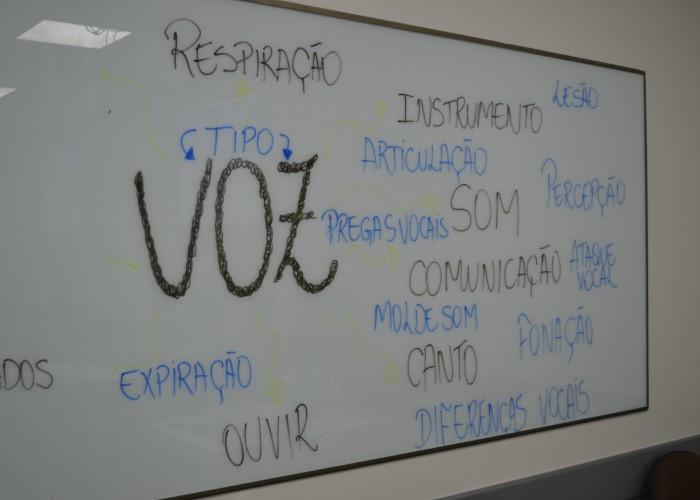 RESPIRAÇÃO
INSTRUMENTO
LESÃO
TIPO
ARTICULAÇÃO
VOZ
PERCEPÇÃO
SOM
PREGAS VOCAIS
COMUNICAÇÃO
ATAQUE
VOCAL
MOLDE SOM
FONAÇÃO
CANTO
EXPIRAÇÃO
DIFERENÇAS VOCAIS
OUVIR